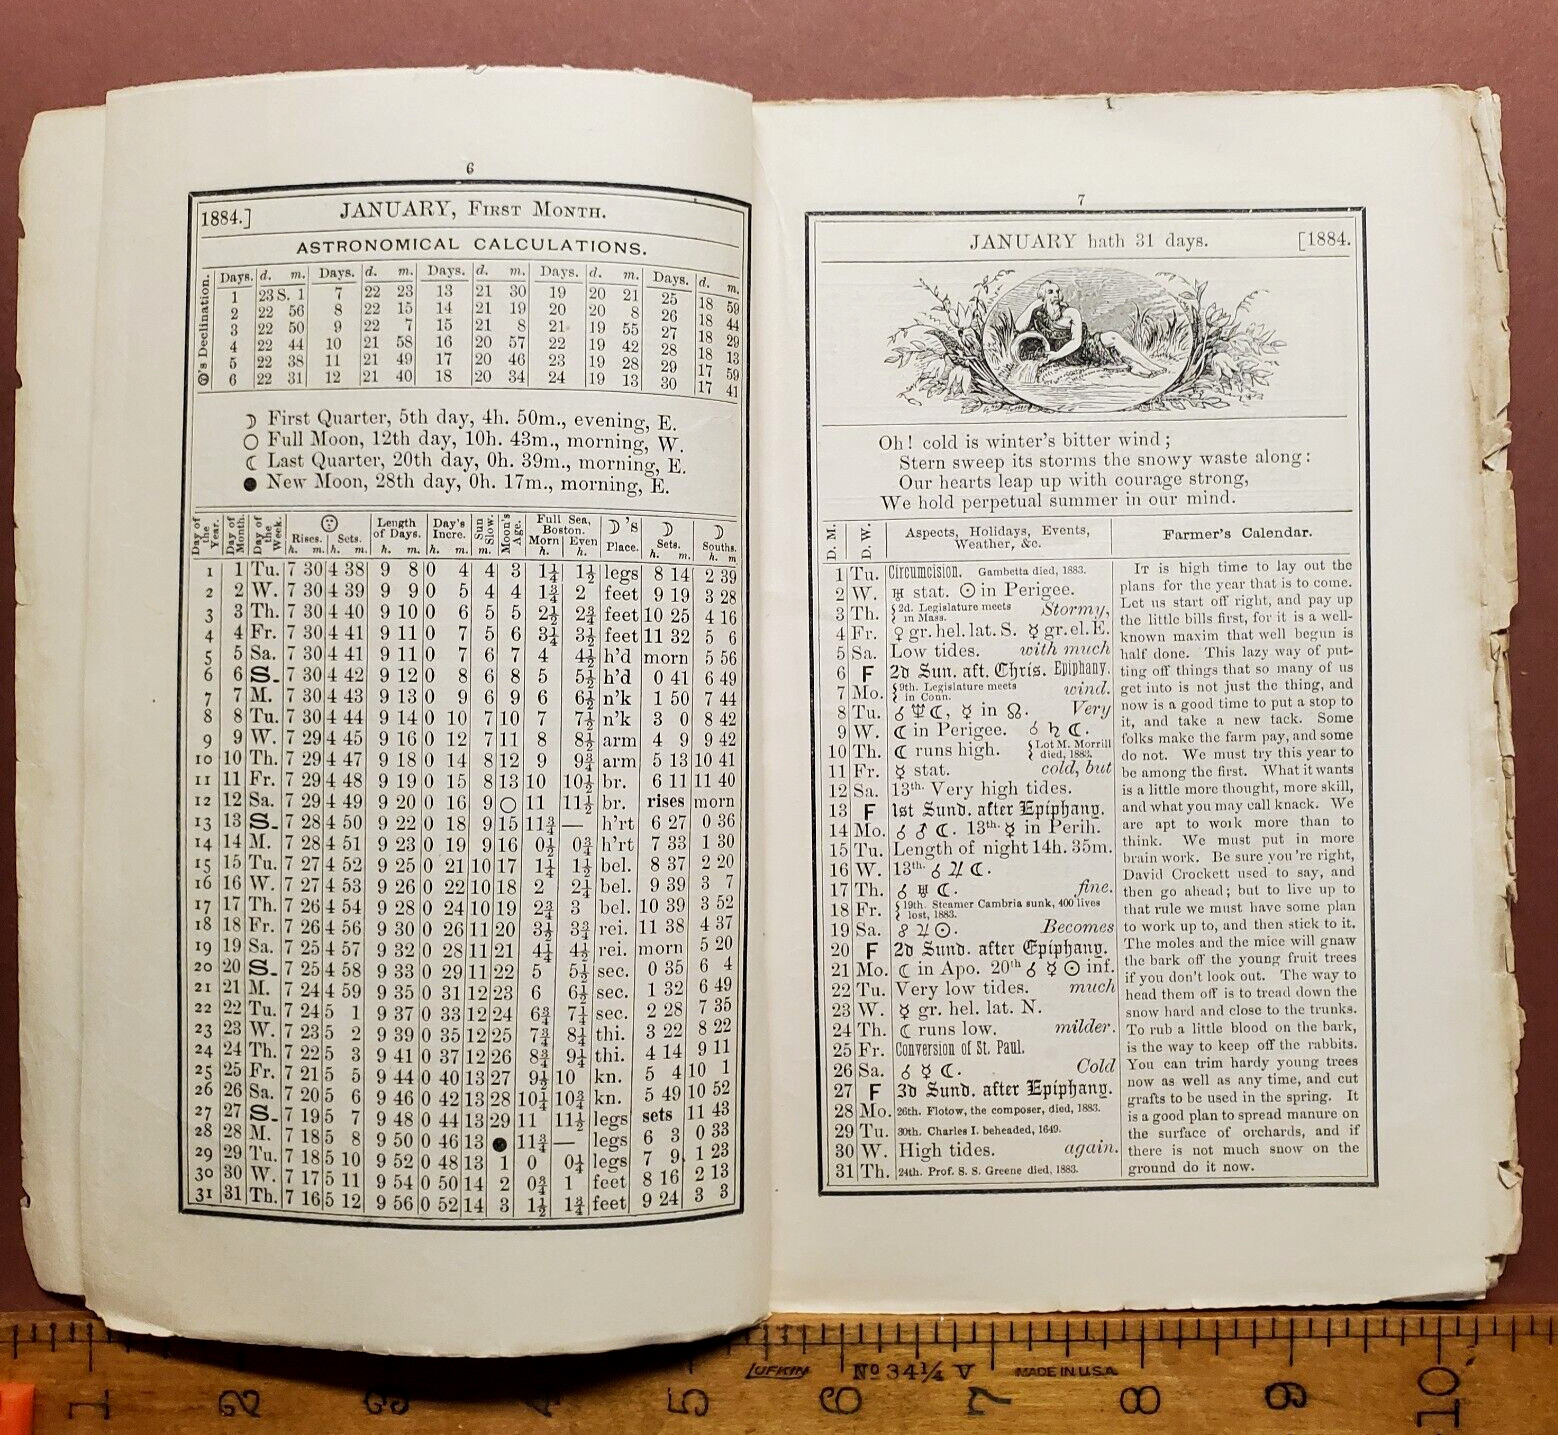 6
1884.] JANUARY, FIRST MONTH.
ASTRONOMICAL CALCULATIONS.
☉'s Declination. Days. d. m. Days. d. m. Days. d. m. Days. d. m. Days. d. m.
1 23 S. 1 7 22 23 13 21 30 19 20 21 25 18 59
2 22 56 8 22 15 14 21 19 20 20 8 26 18 44
3 22 50 9 22 7 15 21 8 21 19 55 27 18 29
4 22 44 10 21 58 16 20 57 22 19 42 28 18 13
5 22 38 11 21 49 17 20 46 23 19 28 29 17 59
6 22 31 12 21 40 18 20 34 24 19 13 30 17 41
☽ First Quarter, 5th day, 4h. 50m., evening, E.
○ Full Moon, 12th day, 10h. 43m., morning, W.
☾ Last Quarter, 20th day, 0h. 39m., morning, E.
● New Moon, 28th day, 0h. 17m., morning, E.
Day of the Year. Day of Month. Day of the Week. ☉ Rises. h. m. Sets. h. m. Length of Days. h. m. Day's Incre. h. m. Sun Slow. m. Moon's Age. Full Sea, Boston. Morn h. Even h. ☽'s Place. ☽ Sets. h. m. ☽ Souths. h. m
1 1 Tu. 7 30 4 38 9 8 0 4 4 3 1¼ 1½ legs 8 14 2 39
2 2 W. 7 30 4 39 9 9 0 5 4 4 1¾ 2 feet 9 19 3 28
3 3 Th. 7 30 4 40 9 10 0 6 5 5 2½ 2¾ feet 10 25 4 16
4 4 Fr. 7 30 4 41 9 11 0 7 5 6 3¼ 3½ feet 11 32 5 6
5 5 Sa. 7 30 4 41 9 11 0 7 6 7 4 4½ h'd morn 5 56
6 6 S. 7 30 4 42 9 12 0 8 6 8 5 5½ h'd 0 41 6 49
7 7 M. 7 30 4 43 9 13 0 9 6 9 6 6½ n'k 1 50 7 44
8 8 Tu. 7 30 4 44 9 14 0 10 7 10 7 7½ n'k 3 0 8 42
9 9 W. 7 29 4 45 9 16 0 12 7 11 8 8½ arm 4 9 9 42
10 10 Th. 7 29 4 47 9 18 0 14 8 12 9 9¾ arm 5 13 10 41
11 11 Fr. 7 29 4 48 9 19 0 15 8 13 10 10½ br. 6 11 11 40
12 12 Sa. 7 29 4 49 9 20 0 16 9 ○ 11 11½ br. rises morn
13 13 S. 7 28 4 50 9 22 0 18 9 15 11¾ — h'rt 6 27 0 36
14 14 M. 7 28 4 51 9 23 0 19 9 16 0½ 0¾ h'rt 7 33 1 30
15 15 Tu. 7 27 4 52 9 25 0 21 10 17 1¼ 1½ bel. 8 37 2 20
16 16 W. 7 27 4 53 9 26 0 22 10 18 2 2¼ bel. 9 39 3 7
17 17 Th. 7 26 4 54 9 28 0 24 10 19 2¾ 3 bel. 10 39 3 52
18 18 Fr. 7 26 4 56 9 30 0 26 11 20 3½ 3¾ rei. 11 38 4 37
19 19 Sa. 7 25 4 57 9 32 0 28 11 21 4¼ 4½ rei. morn 5 20
20 20 S. 7 25 4 58 9 33 0 29 11 22 5 5½ sec. 0 35 6 4
21 21 M. 7 24 4 59 9 35 0 31 12 23 6 6½ sec. 1 32 6 49
22 22 Tu. 7 24 5 1 9 37 0 33 12 24 6¾ 7¼ sec. 2 28 7 35
23 23 W. 7 23 5 2 9 39 0 35 12 25 7¾ 8¼ thi. 3 22 8 22
24 24 Th. 7 22 5 3 9 41 0 37 12 26 8¾ 9¼ thi. 4 14 9 11
25 25 Fr. 7 21 5 5 9 44 0 40 13 27 9½ 10 kn. 5 4 10 1
26 26 Sa. 7 20 5 6 9 46 0 42 13 28 10¼ 10¾ kn. 5 49 10 52
27 27 S. 7 19 5 7 9 48 0 44 13 29 11 11½ legs sets 11 43
28 28 M. 7 18 5 8 9 50 0 46 13 ● 11¾ — legs 6 3 0 33
29 29 Tu. 7 18 5 10 9 52 0 48 13 1 0 0¼ legs 7 9 1 23
30 30 W. 7 17 5 11 9 54 0 50 14 2 0¾ 1 feet 8 16 2 13
31 31 Th. 7 16 5 12 9 56 0 52 14 3 1½ 1¾ feet 9 24 3 3
7
JANUARY hath 31 days. [1884.
Oh! cold is winter's bitter wind;
Stern sweep its storms the snowy waste along:
Our hearts leap up with courage strong,
We hold perpetual summer in our mind.
D. M. D. W. Aspects, Holidays, Events, Weather, &c.
1 Tu. Circumcision. Gambetta died, 1883.
2 W. ♅ stat. ☉ in Perigee.
3 Th. 2d. Legislature meets in Mass. Stormy,
4 Fr. ♀ gr. hel. lat. S. ☿ gr. el. E.
5 Sa. Low tides. with much
6 F 2d Sun. aft. Chris. Epiphany.
7 Mo. 9th. Legislature meets in Conn. wind.
8 Tu. ☌ ♆ ☾, ☿ in ☊. Very
9 W. ☾ in Perigee. ☌ ♄ ☾.
10 Th. ☾ runs high. Lot M. Morrill died, 1883.
11 Fr. ☿ stat. cold, but
12 Sa. 13th. Very high tides.
13 F 1st Sund. after Epiphany.
14 Mo. ☌ ♂ ☾. 13th. ☿ in Perih.
15 Tu. Length of night 14h. 35m.
16 W. 13th. ☌ ♃ ☾.
17 Th. ☌ ♅ ☾. fine.
18 Fr. 19th. Steamer Cambria sunk, 400 lives lost, 1883.
19 Sa. ☍ ♃ ☉. Becomes
20 F 2d Sund. after Epiphany.
21 Mo. ☾ in Apo. 20th ☌ ☿ ☉ inf.
22 Tu. Very low tides. much
23 W. ☿ gr. hel. lat. N.
24 Th. ☾ runs low. milder.
25 Fr. Conversion of St. Paul.
26 Sa. ☌ ☿ ☾. Cold
27 F 3d Sund. after Epiphany.
28 Mo. 26th. Flotow, the composer, died, 1883.
29 Tu. 30th. Charles I. beheaded, 1649.
30 W. High tides. again.
31 Th. 24th. Prof. S. S. Greene died, 1883.
Farmer's Calendar.
IT is high time to lay out the
plans for the year that is to come.
Let us start off right, and pay up
the little bills first, for it is a well-
known maxim that well begun is
half done. This lazy way of put-
ting off things that so many of us
get into is not just the thing, and
now is a good time to put a stop to
it, and take a new tack. Some
folks make the farm pay, and some
do not. We must try this year to
be among the first. What it wants
is a little more thought, more skill,
and what you may call knack. We
are apt to work more than to
think. We must put in more
brain work. Be sure you're right,
David Crockett used to say, and
then go ahead; but to live up to
that rule we must have some plan
to work up to, and then stick to it.
The moles and the mice will gnaw
the bark off the young fruit trees
if you don't look out. The way to
head them off is to tread down the
snow hard and close to the trunks.
To rub a little blood on the bark,
is the way to keep off the rabbits.
You can trim hardy young trees
now as well as any time, and cut
grafts to be used in the spring. It
is a good plan to spread manure on
the surface of orchards, and if
there is not much snow on the
ground do it now.
LUFKIN No 34¼ V MADE IN U.S.A.
1 2 3 4 5 6 7 8 9 10